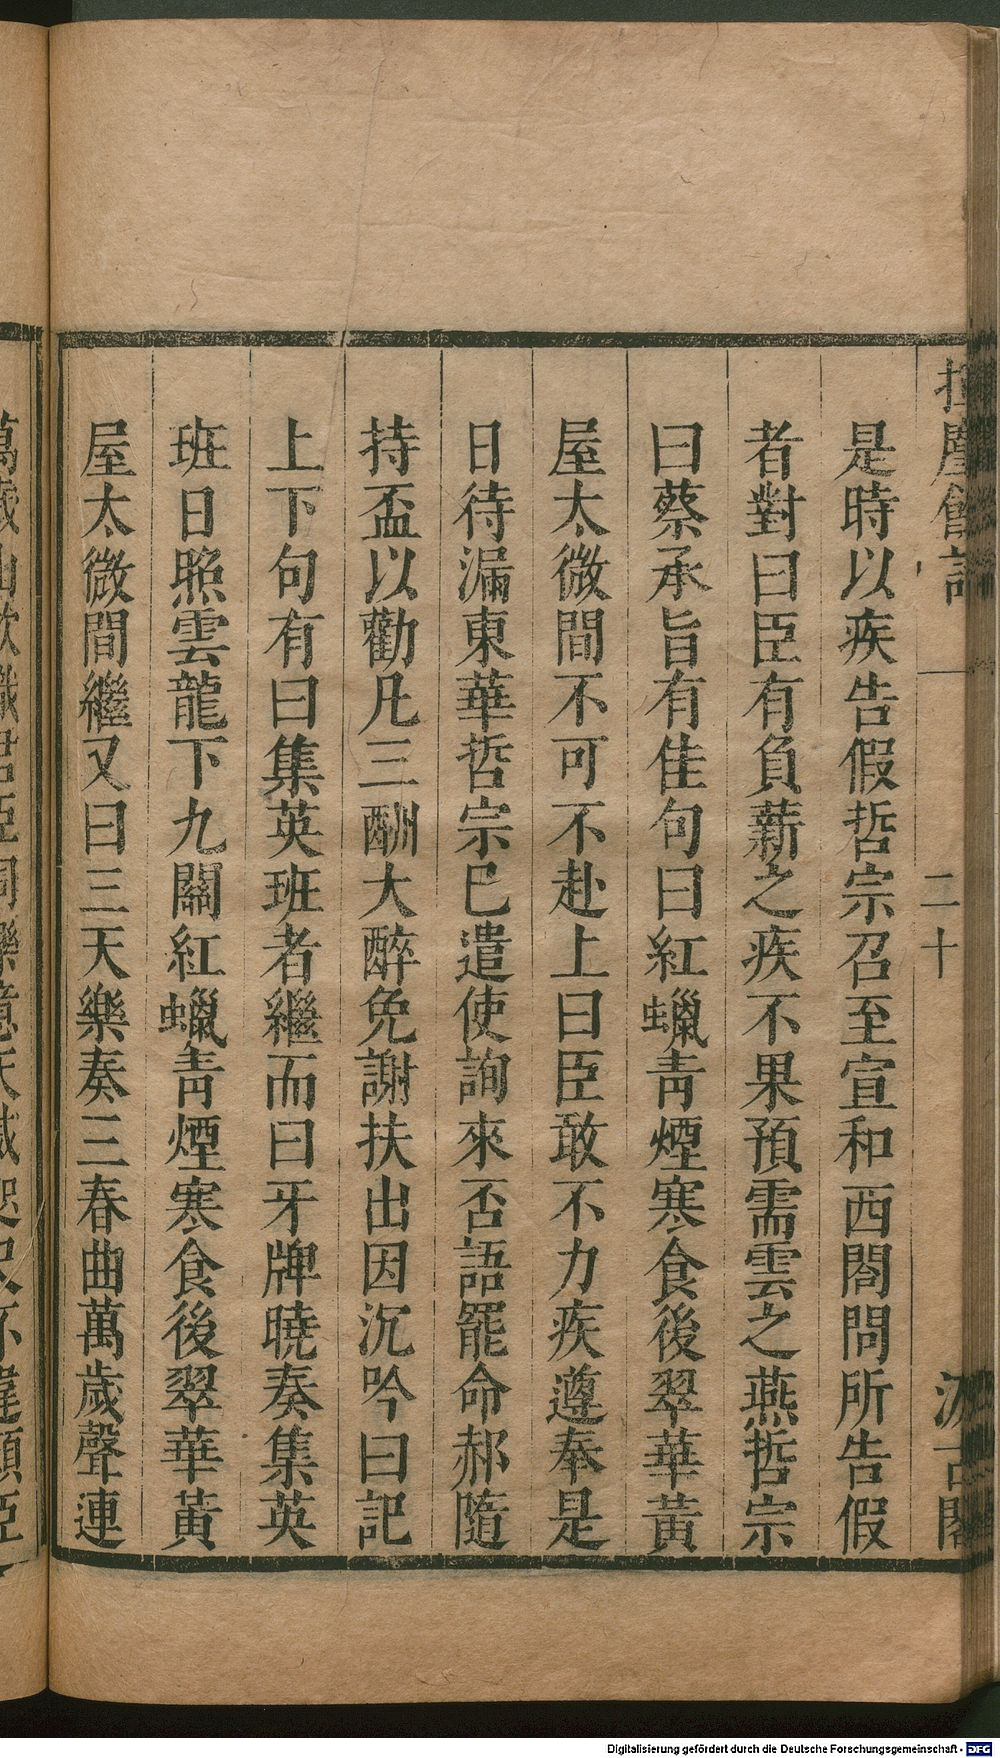 揮麈餘話
二十
汲古閣
是時以疾告假哲宗召至宣和西閣問所告假
者對曰臣有負薪之疾不果預需雲之燕哲宗
曰蔡承旨有佳句曰紅蠟青煙寒食後翠華黃
屋太微間不可不赴上曰臣敢不力疾遵奉是
日待漏東華哲宗已遣使詢來否語罷命郝隨
持盃以勸凡三酬大醉免謝扶出因沉吟曰記
上下句有曰集英班者繼而曰牙牌曉奏集英
班日照雲龍下九關紅蠟青煙寒食後翠華黃
屋太微間繼又曰三天樂奏三春曲萬歲聲連
Digitalisierung gefördert durch die Deutsche Forschungsgemeinschaft - DFG